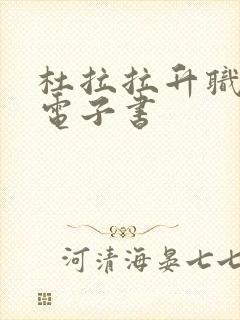 杜拉拉升職
電子書
河清海晏七七